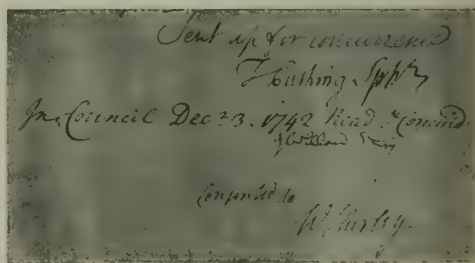 Sent up for concurrence
T Cushing Spkr
In Council Decr 3. 1742 Read & Concur'd
J Willard Secry
Consented to
W Shirley.